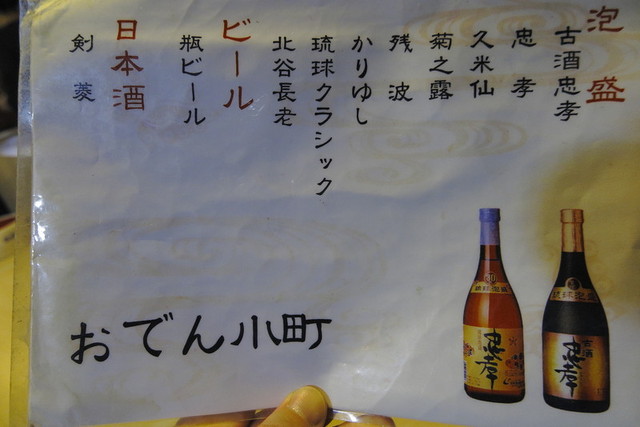 泡盛
古酒忠孝
忠孝
久米仙
菊之露
残波
かりゆし
琉球クラシック
北谷長老
ビール
瓶ビール
日本酒
剣菱
おでん小町
琉球泡盛
忠孝
琉球泡盛
古酒
忠孝